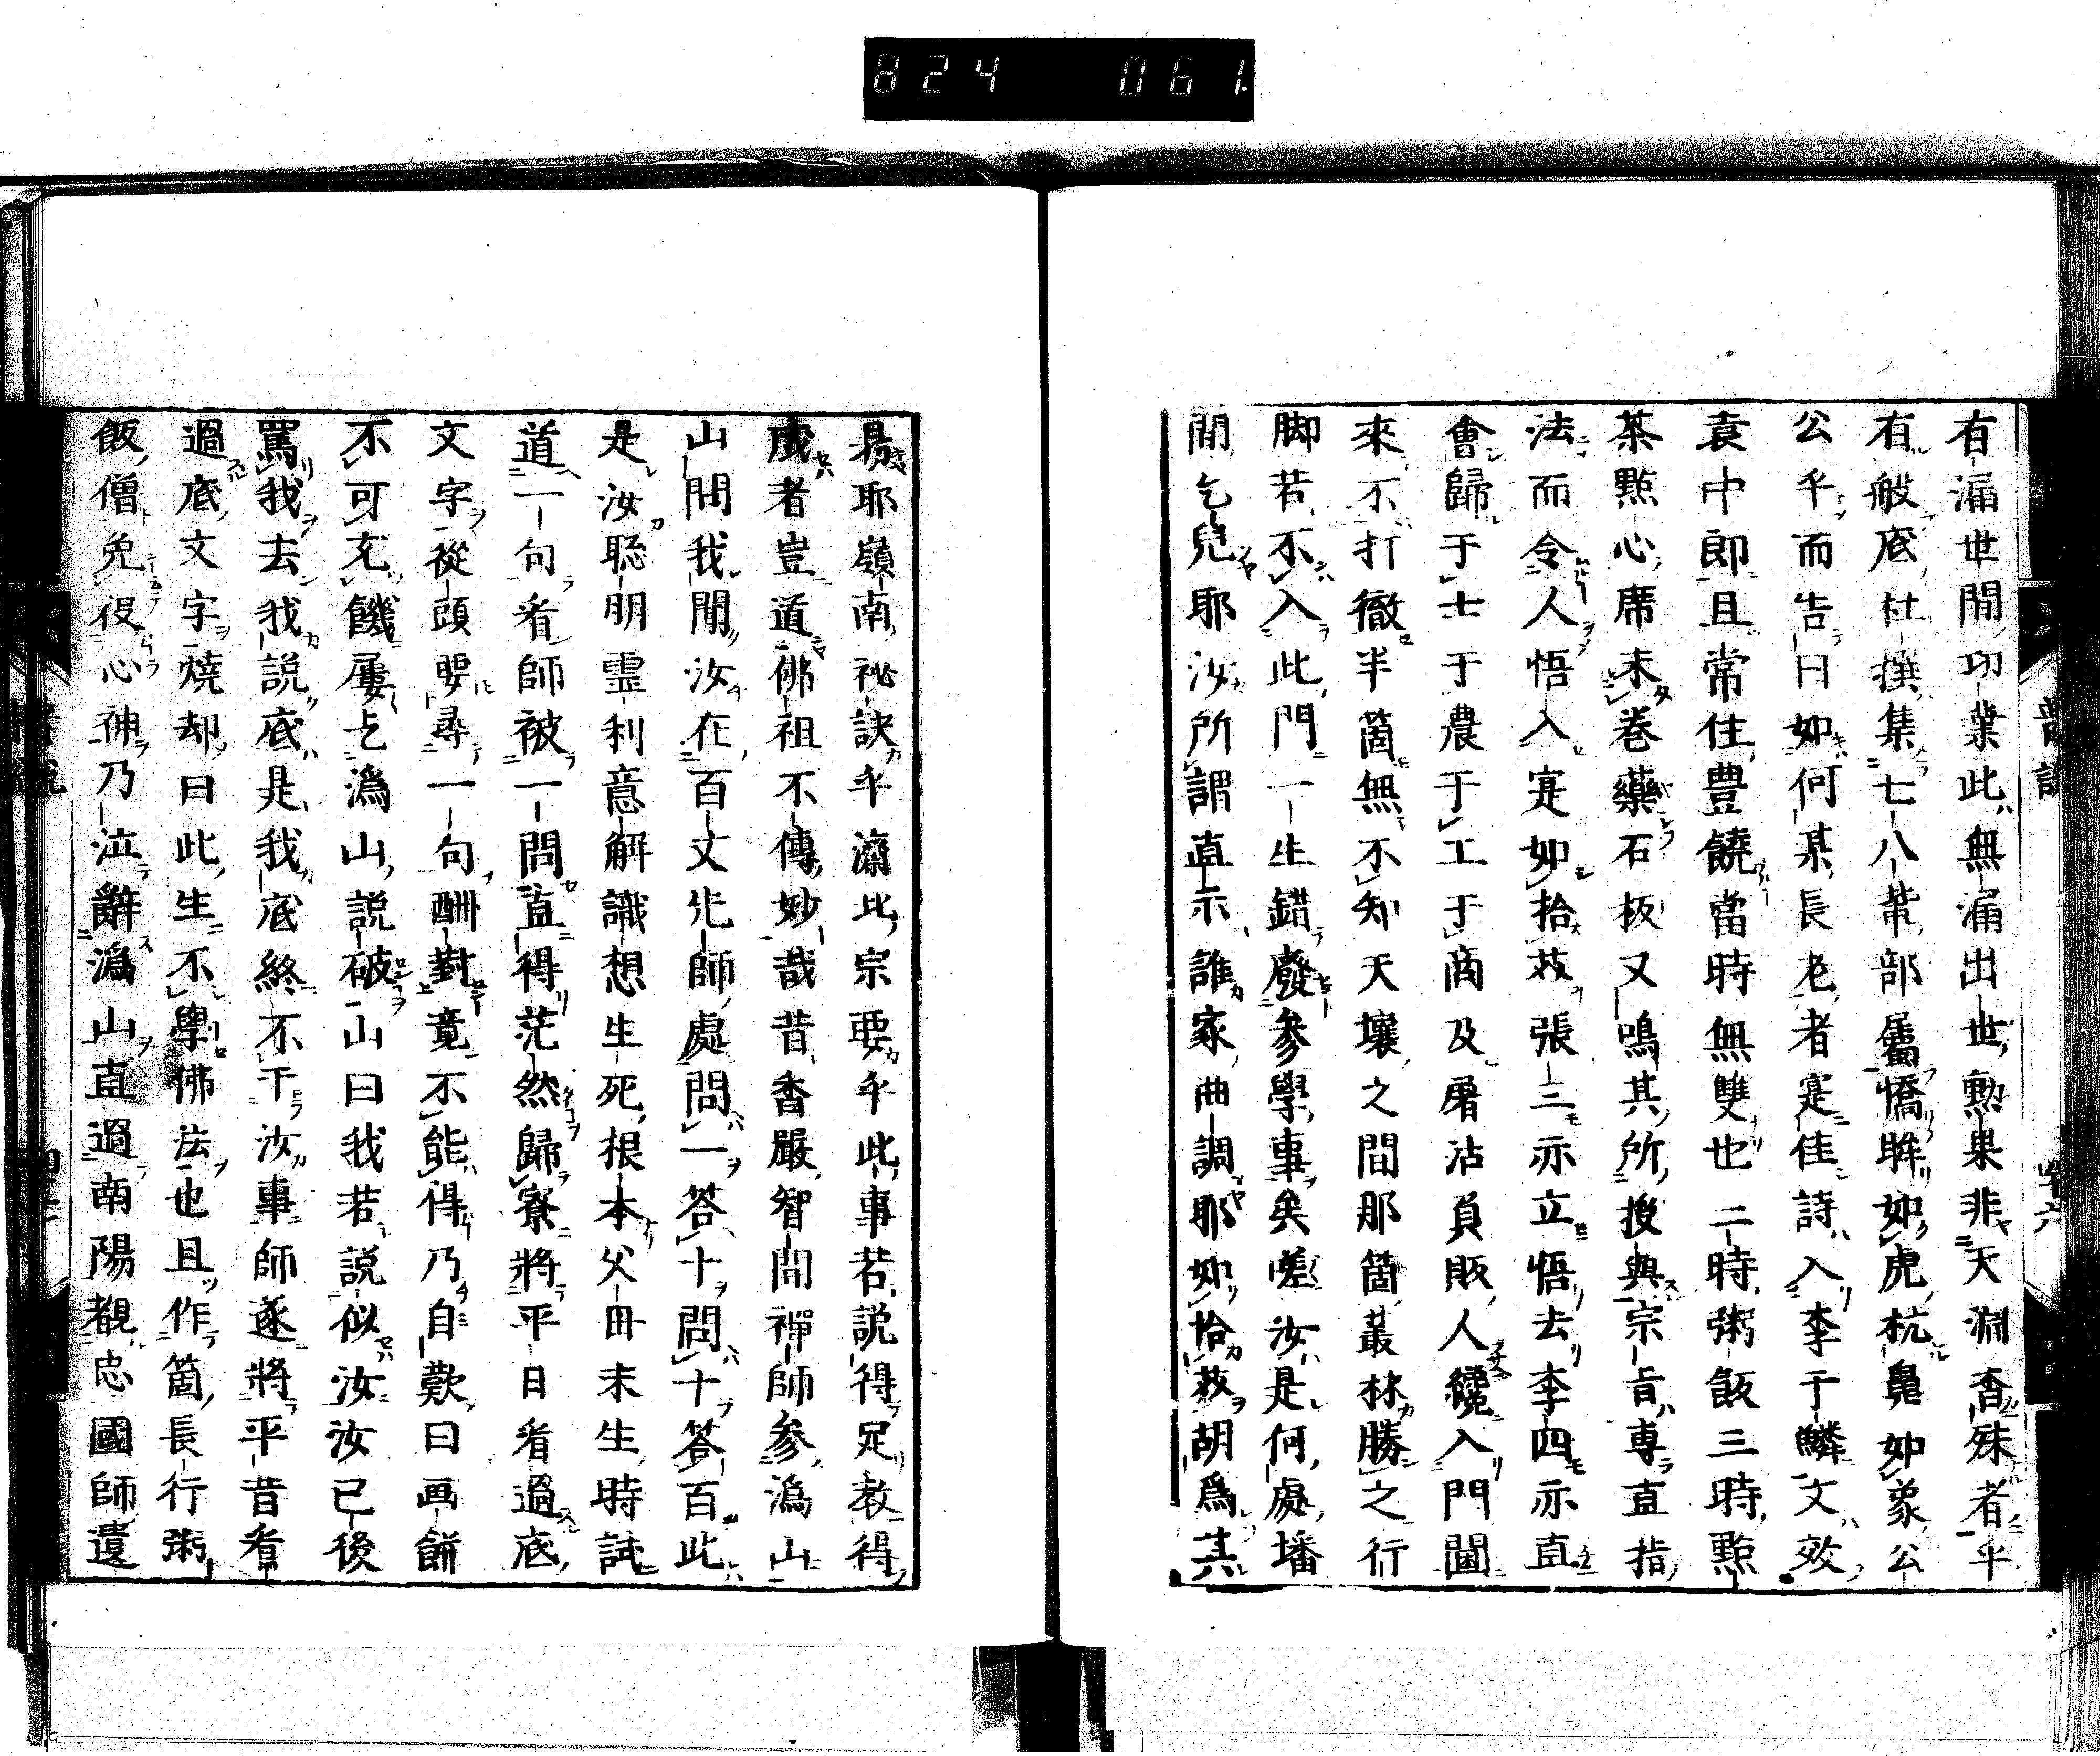 824 061.
有漏世間功業此無漏出世勲果非天淵杳殊者乎
右般底杜撰集七八輩部屬憍眸如虎杭鳧如象公
公乎而告曰如何某長老者寔佳詩入李于鱗文效
袁中郎且常住豊饒當時無雙也二時粥飯三時點
茶點心席末卷藥石板又鳴其所授與宗旨專直指
法而令人悟入寔如拾芥張三亦立悟去李四亦直
會歸于士于農于工于商及屠沽負販人纔入門閫
來不打徹半箇無不知天壤之間那箇叢林勝之行
脚若不入此門一生錯廢參學事矣嗟汝是何處墦
間乞兒耶汝所謂直示誰家曲調耶如拾芥胡爲其
易耶嶺南祕訣乎濟北宗要乎此事若説得足教得
成者豈道佛祖不傳妙哉昔香嚴智閑禪師參潙山
山問我聞汝在百丈先師處問一答十問十答百此
是汝聡明霊利意解識想生死根本父母未生時試
道一句看師被一問直得茫然歸寮將平日看過底
文字從頭要尋一句酬對竟不能得乃自歎曰画餠
不可充饑屢乞潙山説破山曰我若説似汝汝已後
罵我去我説底是我底終不干汝事師遂將平昔看
過底文字燒却曰此生不學佛法也且作箇長行粥
飯僧免役心神乃泣辭潙山直過南陽覩忠國師遺